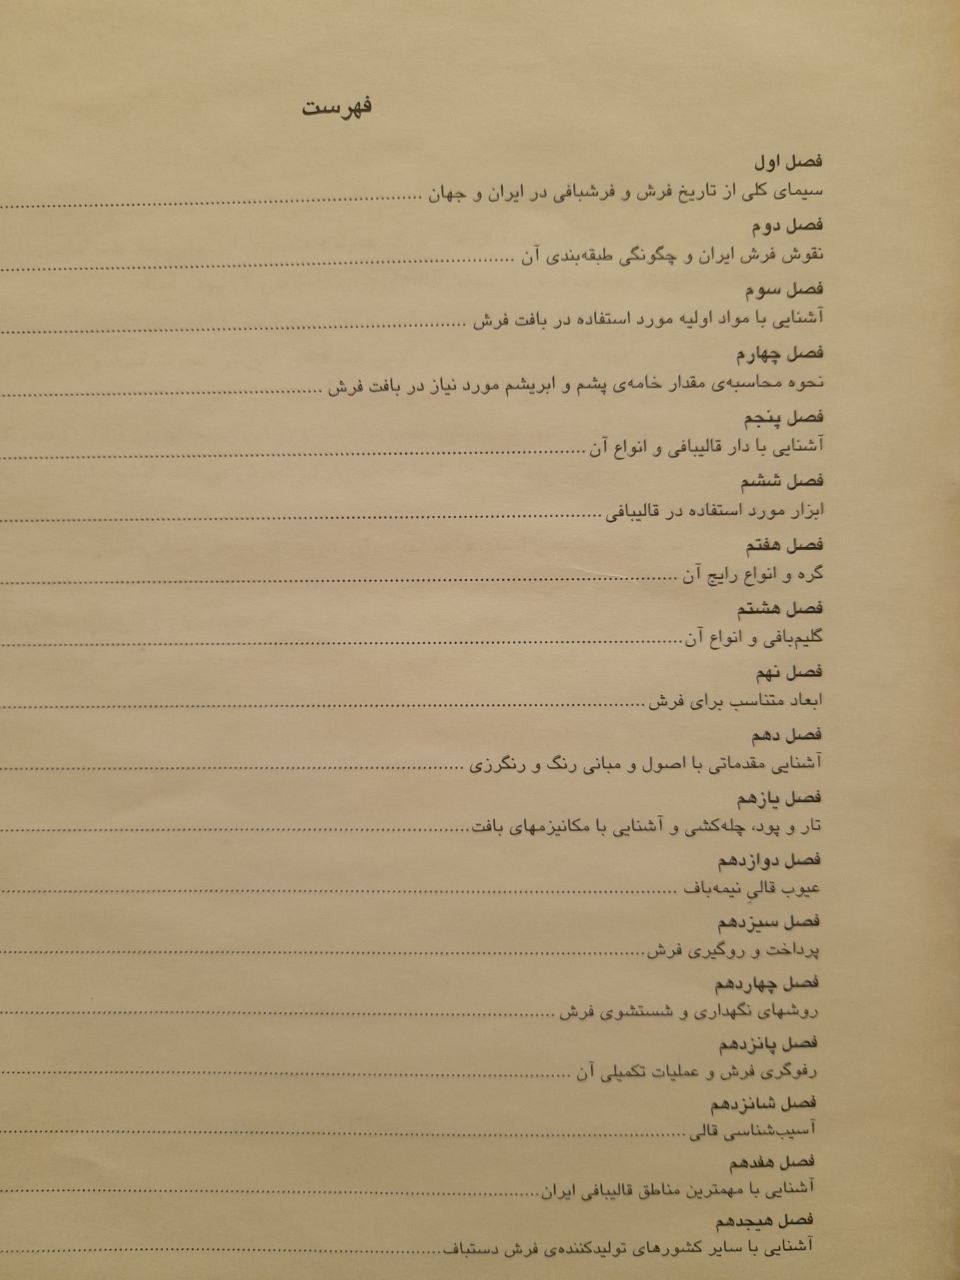 فهرست
فصل اول
سیمای کلی از تاریخ فرش و فرشبافی در ایران و جهان ..............................
فصل دوم
نقوش فرش ایران و چگونگی طبقه‌بندی آن ..............................
فصل سوم
آشنایی با مواد اولیه مورد استفاده در بافت فرش ..............................
فصل چهارم
نحوه محاسبه‌ی مقدار خامه‌ی پشم و ابریشم مورد نیاز در بافت فرش ..............................
فصل پنجم
آشنایی با دار قالیبافی و انواع آن ..............................
فصل ششم
ابزار مورد استفاده در قالیبافی ..............................
فصل هفتم
گره و انواع رایج آن ..............................
فصل هشتم
گلیم‌بافی و انواع آن ..............................
فصل نهم
ابعاد متناسب برای فرش ..............................
فصل دهم
آشنایی مقدماتی با اصول و مبانی رنگ و رنگرزی ..............................
فصل یازهم
تار و پود، چله‌کشی و آشنایی با مکانیزمهای بافت ..............................
فصل دوازدهم
عیوب قالیِ نیمه‌باف ..............................
فصل سیزدهم
پرداخت و روگیری فرش ..............................
فصل چهاردهم
روشهای نگهداری و شستشوی فرش ..............................
فصل پانزدهم
رفوگری فرش و عملیات تکمیلی آن ..............................
فصل شانزدهم
آسیب‌شناسی قالی ..............................
فصل هفدهم
آشنایی با مهمترین مناطق قالیبافی ایران ..............................
فصل هیجدهم
آشنایی با سایر کشورهای تولیدکننده‌ی فرش دستباف ..............................